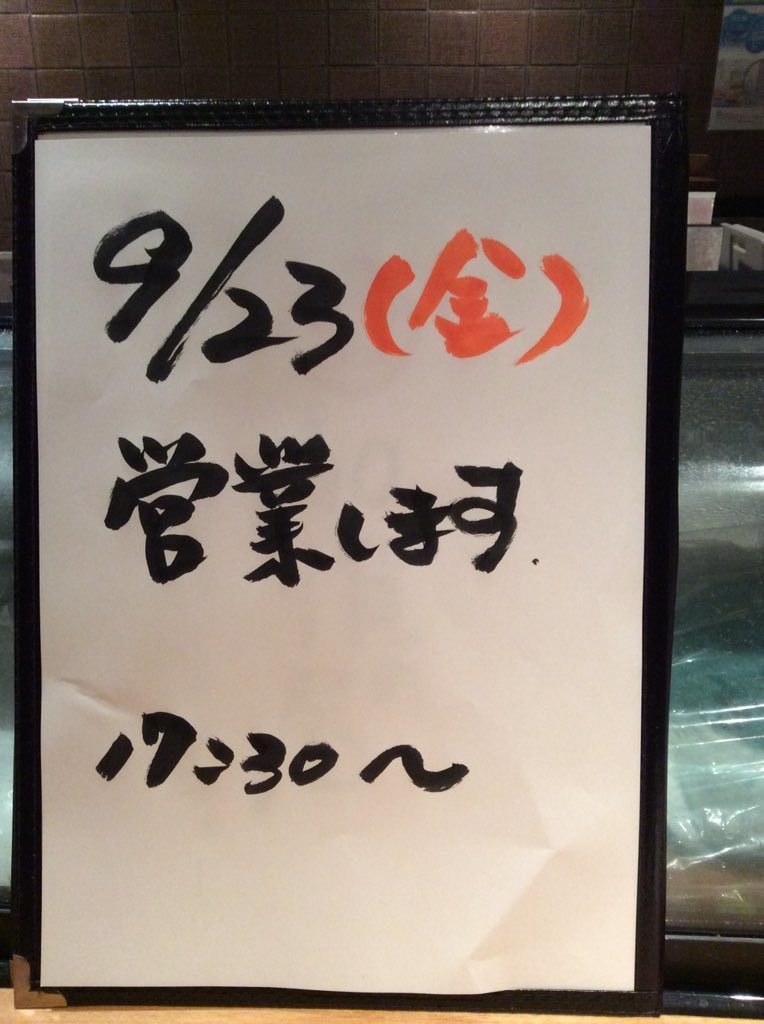 9/23(金)
営業します.
17:30〜